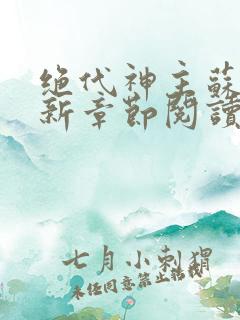 绝代神主蘇
新章節閱讀
七月小刺猬
未经同意禁止转载